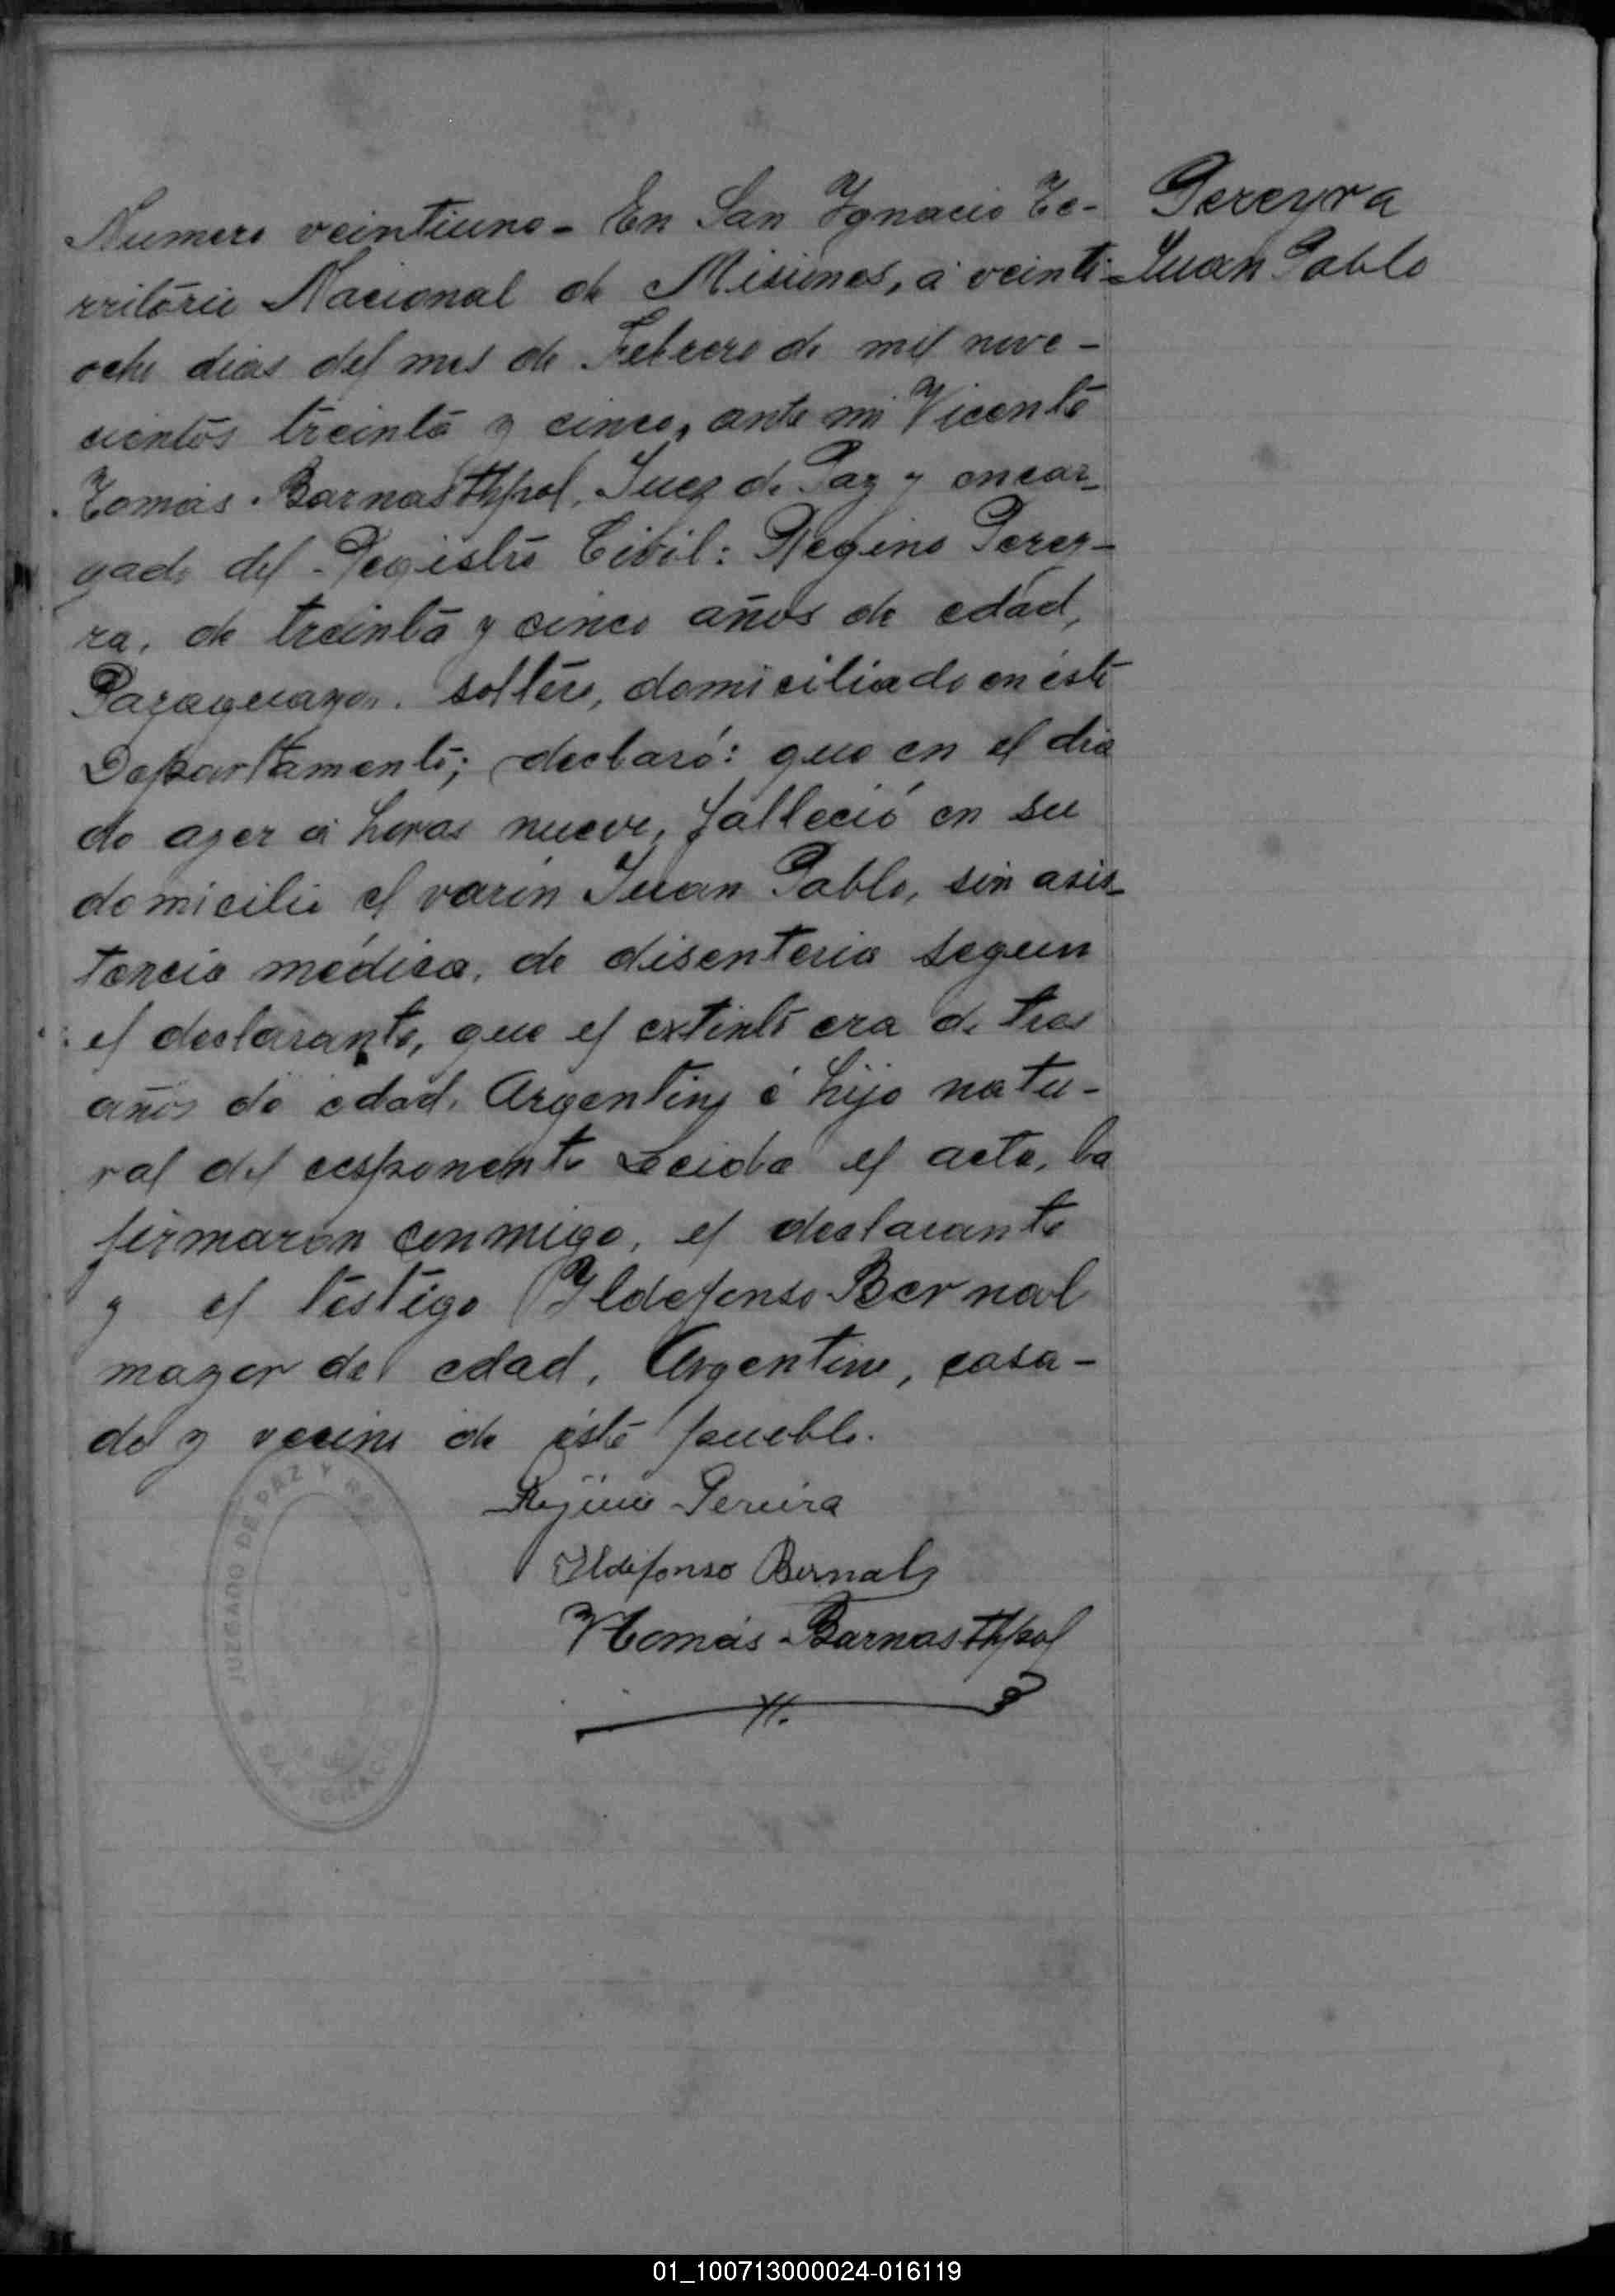 Pereyra
Juan Pablo
Numero veintiuno - En San Ygnacio Te-
rritório Nacional de Misiones, a veinti-
ocho dias del mes de Febrero de mil nove-
cientos treinta y cinco, ante mi Vicente
Tomás Barnasthpol, Juez de Paz y encar-
gado del Registro Civil: Regino Perey-
ra, de treinta y cinco años de edad,
Paraguayo, soltero, domiciliado en éste
Departamento; declaró: que en el dia
de ayer a horas nueve, falleció en su
domicilio el varón Juan Pablo, sin asis-
tencia médica, de disenteria segun
el declarante, que el extinto era de tres
años de edad, Argentino é hijo natu-
ral del esponente Leida el acta, la
firmaron conmigo, el declarante
y el testigo Yldefonso Bernal
mayor de edad, Argentino, casa-
do y vecino de éste pueblo.
Rejino Pereira
Yldefonso Bernal
VTomás Barnasthpol
JUZGADO DE PAZ Y
SAN IGNACIO
01_100713000024-016119